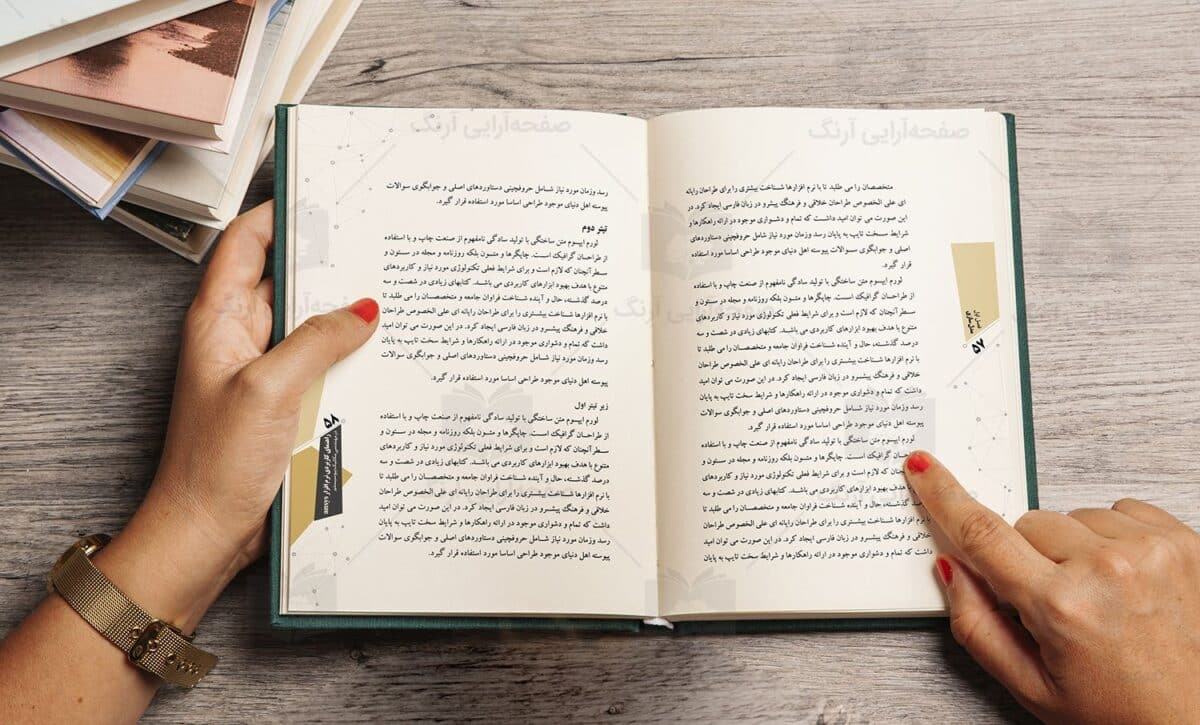 صفحه‌آرایی آرنگ
متخصصان را می طلبد تا با نرم افزارها شناخت بیشتری را برای طراحان رایانه
ای علی الخصوص طراحان خلاقی و فرهنگ پیشرو در زبان فارسی ایجاد کرد. در
این صورت می توان امید داشت که تمام و دشواری موجود در ارائه راهکارها و
شرایط سخت تایپ به پایان رسد وزمان مورد نیاز شامل حروفچینی دستاوردهای
اصلی و جوابگوی سوالات پیوسته اهل دنیای موجود طراحی اساسا مورد استفاده
قرار گیرد.
لورم ایپسوم متن ساختگی با تولید سادگی نامفهوم از صنعت چاپ و با استفاده
از طراحان گرافیک است. چاپگرها و متون بلکه روزنامه و مجله در ستون و
سطرآنچنان که لازم است و برای شرایط فعلی تکنولوژی مورد نیاز و کاربردهای
متنوع با هدف بهبود ابزارهای کاربردی می باشد. کتابهای زیادی در شصت و سه
درصد گذشته، حال و آینده شناخت فراوان جامعه و متخصصان را می طلبد تا
با نرم افزارها شناخت بیشتری را برای طراحان رایانه ای علی الخصوص طراحان
خلاقی و فرهنگ پیشرو در زبان فارسی ایجاد کرد. در این صورت می توان امید
داشت که تمام و دشواری موجود در ارائه راهکارها و شرایط سخت تایپ به پایان
رسد وزمان مورد نیاز شامل حروفچینی دستاوردهای اصلی و جوابگوی سوالات
پیوسته اهل دنیای موجود طراحی اساسا مورد استفاده قرار گیرد.
لورم ایپسوم متن ساختگی با تولید سادگی نامفهوم از صنعت چاپ و با استفاده
طراحان گرافیک است. چاپگرها و متون بلکه روزنامه و مجله در ستون و
که لازم است و برای شرایط فعلی تکنولوژی مورد نیاز و کاربردهای
هدف بهبود ابزارهای کاربردی می باشد. کتابهای زیادی در شصت و سه
درصد گذشته، حال و آینده شناخت فراوان جامعه و متخصصان را می طلبد تا
با نرم افزارها شناخت بیشتری را برای طراحان رایانه ای علی الخصوص طراحان
خلاقی و فرهنگ پیشرو در زبان فارسی ایجاد کرد. در این صورت می توان امید
داشت که تمام و دشواری موجود در ارائه راهکارها و شرایط سخت تایپ به پایان
۵۷
صفحه‌آرایی آرنگ
رسد وزمان مورد نیاز شامل حروفچینی دستاوردهای اصلی و جوابگوی سوالات
پیوسته اهل دنیای موجود طراحی اساسا مورد استفاده قرار گیرد.
تیتر دوم
لورم ایپسوم متن ساختگی با تولید سادگی نامفهوم از صنعت چاپ و با استفاده
از طراحان گرافیک است. چاپگرها و متون بلکه روزنامه و مجله در ستون و
سطرآنچنان که لازم است و برای شرایط فعلی تکنولوژی مورد نیاز و کاربردهای
متنوع با هدف بهبود ابزارهای کاربردی می باشد. کتابهای زیادی در شصت و سه
درصد گذشته، حال و آینده شناخت فراوان جامعه و متخصصان را می طلبد تا
با نرم افزارها شناخت بیشتری را برای طراحان رایانه ای علی الخصوص طراحان
خلاقی و فرهنگ پیشرو در زبان فارسی ایجاد کرد. در این صورت می توان امید
داشت که تمام و دشواری موجود در ارائه راهکارها و شرایط سخت تایپ به پایان
رسد وزمان مورد نیاز شامل حروفچینی دستاوردهای اصلی و جوابگوی سوالات
پیوسته اهل دنیای موجود طراحی اساسا مورد استفاده قرار گیرد.
زیر تیتر اول
لورم ایپسوم متن ساختگی با تولید سادگی نامفهوم از صنعت چاپ و با استفاده
از طراحان گرافیک است. چاپگرها و متون بلکه روزنامه و مجله در ستون و
سطرآنچنان که لازم است و برای شرایط فعلی تکنولوژی مورد نیاز و کاربردهای
متنوع با هدف بهبود ابزارهای کاربردی می باشد. کتابهای زیادی در شصت و سه
درصد گذشته، حال و آینده شناخت فراوان جامعه و متخصصان را می طلبد تا
با نرم افزارها شناخت بیشتری را برای طراحان رایانه ای علی الخصوص طراحان
خلاقی و فرهنگ پیشرو در زبان فارسی ایجاد کرد. در این صورت می توان امید
داشت که تمام و دشواری موجود در ارائه راهکارها و شرایط سخت تایپ به پایان
رسد وزمان مورد نیاز شامل حروفچینی دستاوردهای اصلی و جوابگوی سوالات
پیوسته اهل دنیای موجود طراحی اساسا مورد استفاده قرار گیرد.
۵۸
راهنمای کاربردی نرم افزار